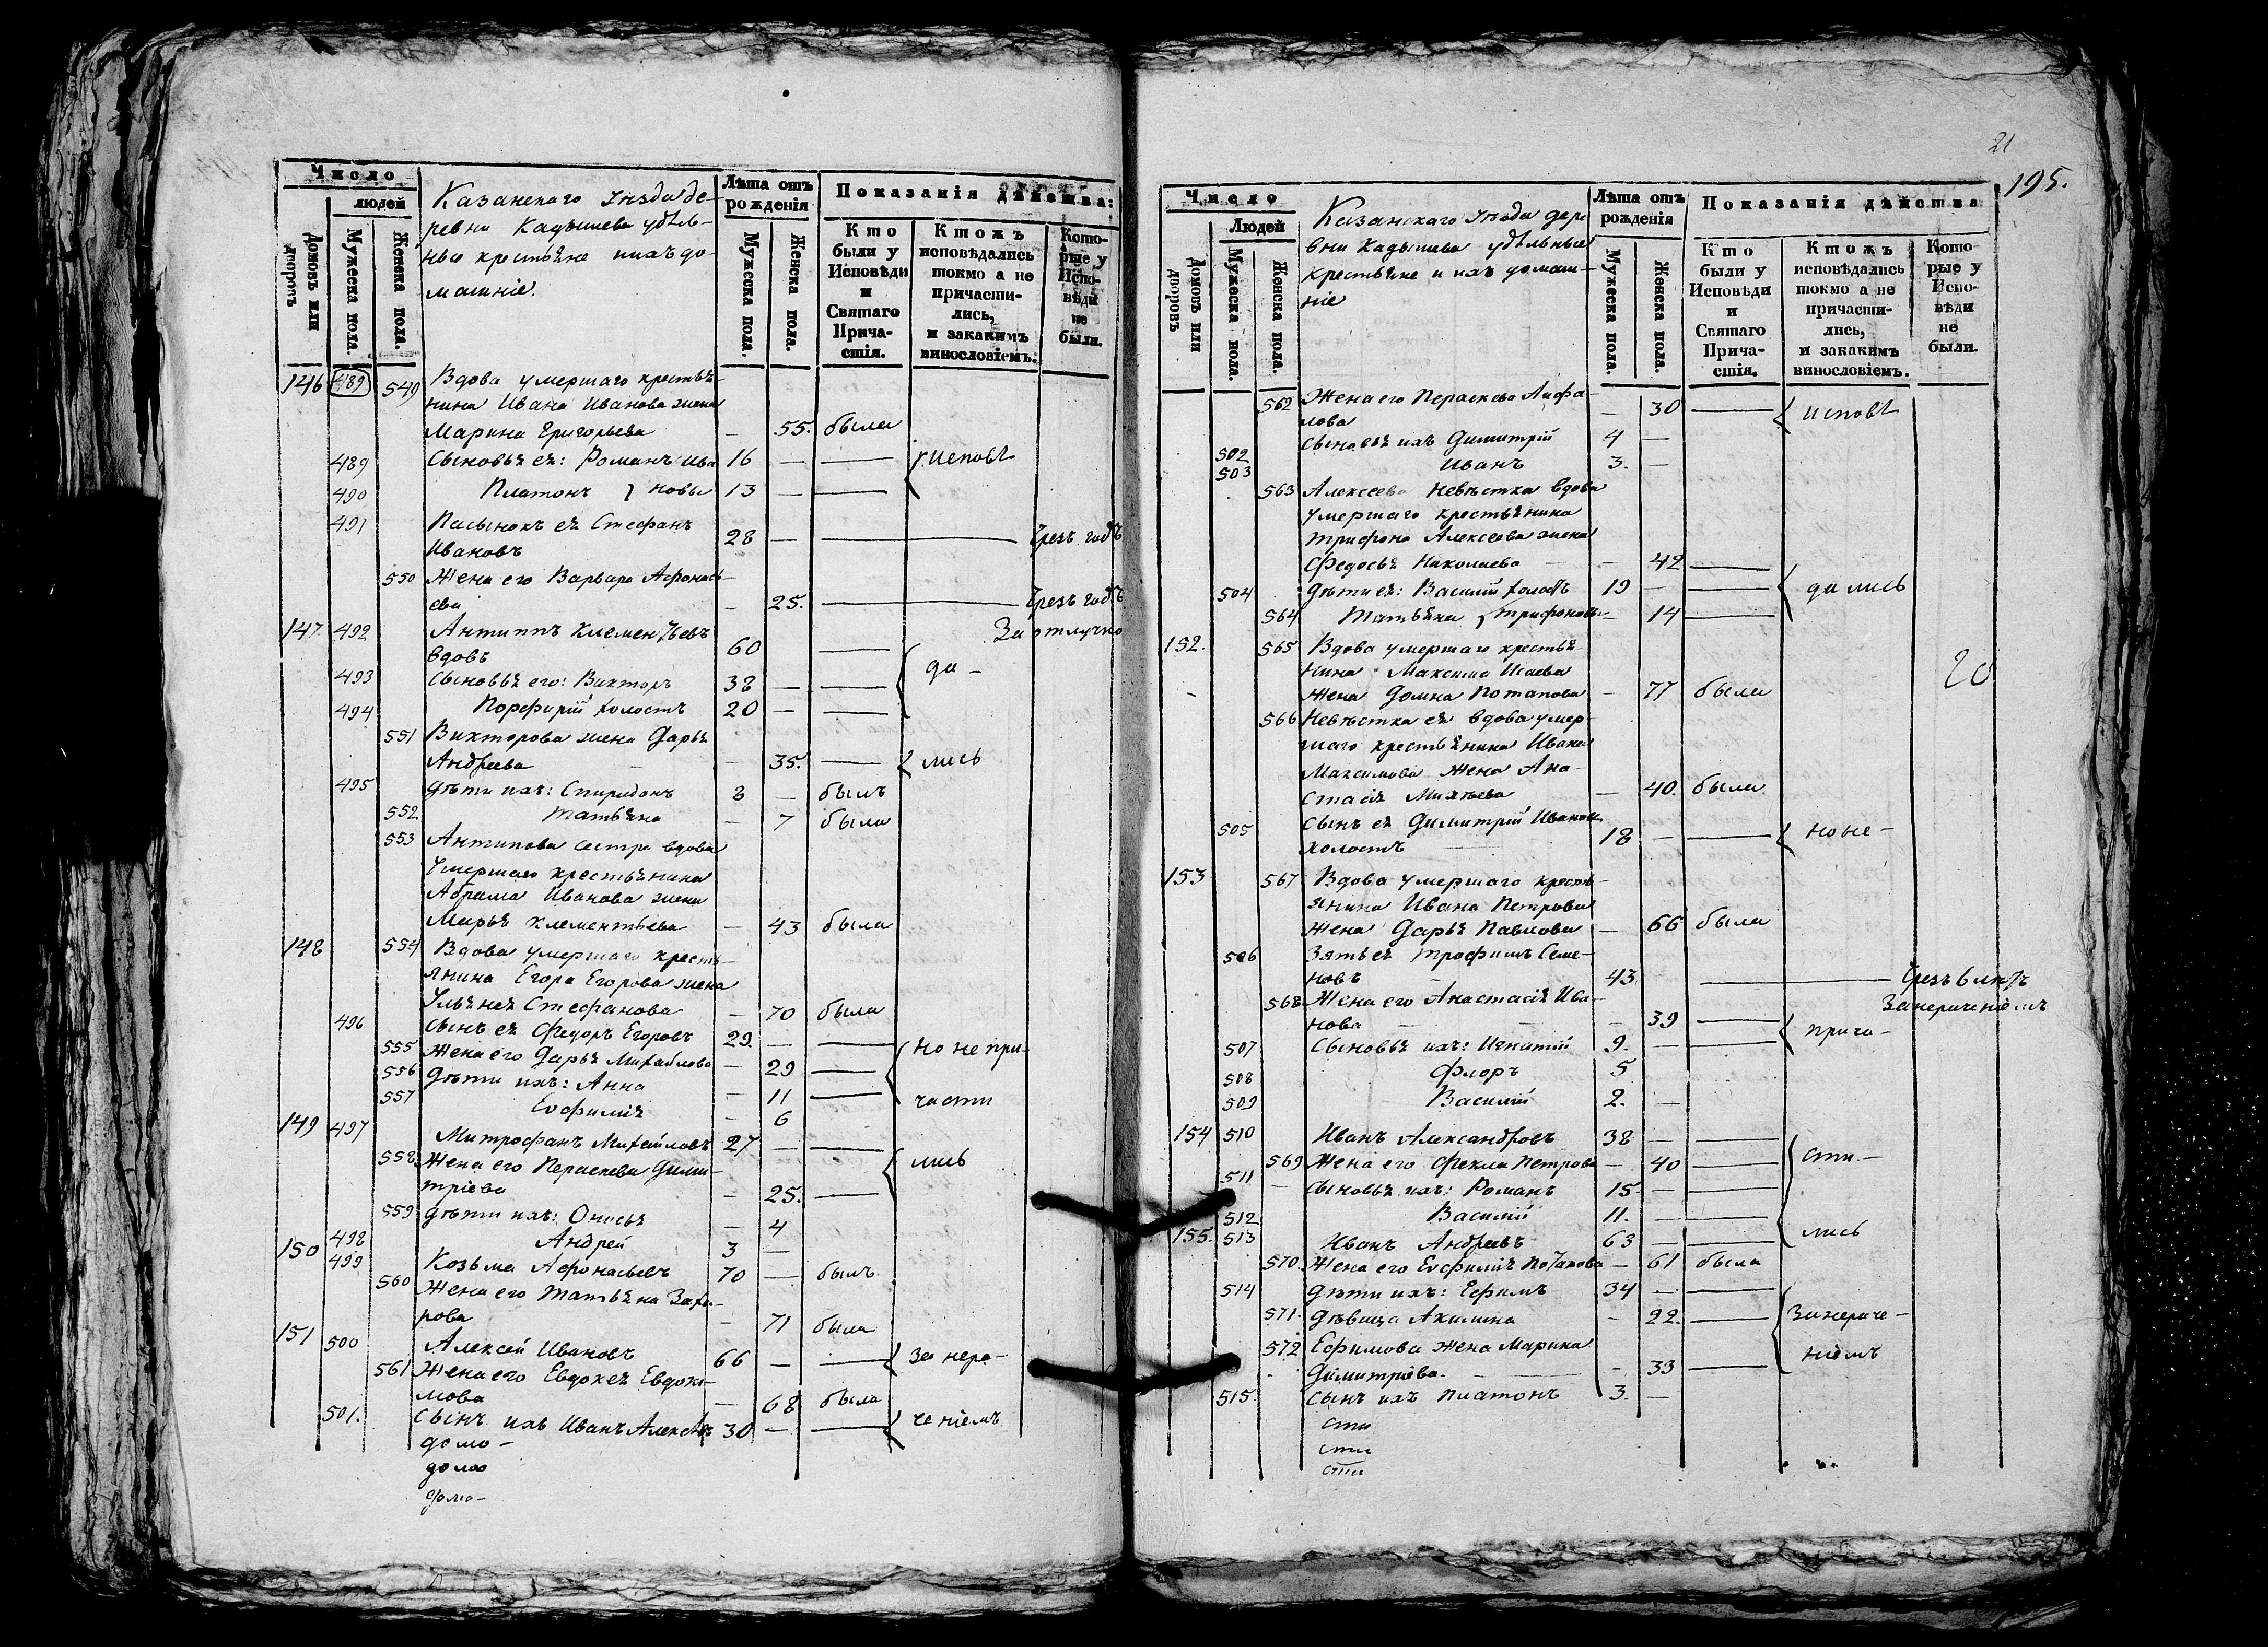 Число
людей
Домовъ или дворовъ
Мужеска пола.
Женска пола.
Казанскаго Уѣзда де-
ревни Кадышева удѣль-
ные крестьяне и ихъ до-
машніе.
Лѣта отъ рожденія
Мужеска пола.
Женска пола.
Показанія дѣйства:
Кто были у Исповѣди и Святаго Прича-стія.
Ктожъ исповѣдались токмо а не причасти-лись, и закакимъ винословіемъ.
Кото-рые у Испо-вѣди не были.
146 489 549 Вдова умершаго крестья-
нина Ивана Иванова жена
Марина Григорьева — 55. была
489 Сыновья ея: Романъ Ива 16 — — исповѣ
490 Платонъ } новы 13 — —
491 Пасынокъ ея Стефанъ
Ивановъ 28 — — Чрезъ годъ
550 Жена его Варвара Афонась-
ева — 25. — Чрезъ годъ
За отлучко
147 492 Антипъ Клементьевъ
вдовъ 60 —
493 Сыновья его: Викторъ 38 — — да-
494 Порфирій холостъ 20 — —
551 Викторова жена Дарья
Андреева — 35. — лись
495 Дѣти ихъ: Спиридонъ 8 — былъ
552 Татьяна — 7 была
553 Антипова сестра вдова
Умершаго крестьянина
Абрама Иванова жена
Марья Клементьева — 43 была
148 554 Вдова умершаго кресть-
янина Егора Егорова жена
Ульянея Стефанова — 70 была
496 Сынъ ея Федоръ Егоровъ 29. — —
555 Жена его Дарья Михайлова — 29 — но не при-
556 Дѣти ихъ: Анна — 11 —
557 Евфимія — 6 части
149 497 Митрофанъ Михайловъ 27 — —
558 Жена его Параскева Дими- лись
тріева — 25. —
559 Дѣти ихъ: Онисья — 4
498 Андрей 3 —
150 499 Козьма Афонасьевъ 70 — былъ
560 Жена его Татьяна Заха-
рова — 71 была
151 500 Алексей Ивановъ 66 — — За нера-
561 Жена его Евдокея Евдоки-
мова — 68 была
501. Сынъ ихъ Иванъ Алексѣевъ 30 — — ченіемъ
домо-

21
195.
Число
Людей
Домовъ или дворовъ
Мужеска пола.
Женска пола.
Казанскаго Уѣзда дер
вни Кадышева удѣльные
крестьяне и ихъ домаш-
ніе
Лѣта отъ рожденія
Мужеска пола.
Женска пола.
Показанія дѣйства
Кто были у Исповѣди и Святаго Прича-стія.
Ктожъ исповѣдались токмо а не причасти-лись, и закакимъ винословіемъ.
Кото-рые у Испо-вѣди не были.
562 Жена его Параскева
лова — 30 — исповѣ
502 Сыновья ихъ Димитрій 4 —
503 Иванъ 3. —
563 Алексеева невѣстка вдова
умершаго крестьянина
Трифона Алексеева жена
Федосья Николаева — 42 —
504 Дѣти ея: Василій холостъ 19 — — дались
564 Татьяна } Трифоновы — 14 —
152. 565 Вдова умершаго крестья-
нина Максима Исаева
жена Домна Потапова — 77 была
20
566 Невѣстка ея вдова умер-
шаго крестьянина Ивана
Максимова жена Ана-
стасія Михѣева — 40. была
505 Сынъ ея Димитрій Иванов
холостъ 18 — — но не-
153 567 Вдова умершаго кресть-
янина Ивана Петрова
жена Дарья Павлова — 66 была
506 Зять ея Трофимъ Семе-
новъ 43 — Чрезъ 6 лѣтъ
568 Жена его Анастасія Ива- Занераченіемъ
нова — 39 —
507 Сыновья ихъ: Игнатій 9. — — прича-
508 Флоръ 5
509 Василій 2. —
154 510 Иванъ Александровъ 38 — —
569 Жена его Фекла Петрова — 40 — сти-
511 Сыновья ихъ: Романъ 15 — —
512 Василій 11. — —
155. 513 Иванъ Андреевъ 63 — — лись
570. Жена его Евфимія Потапова — 61 была
514 Дѣти ихъ: Ефимъ 34 — —
571. Дѣвица Акилина — 22. — Занераче-
572 Ефимова жена Марина ніемъ
Димитріева. — 33 —
515. Сынъ ихъ Платонъ 3. —
сти
сти
сти